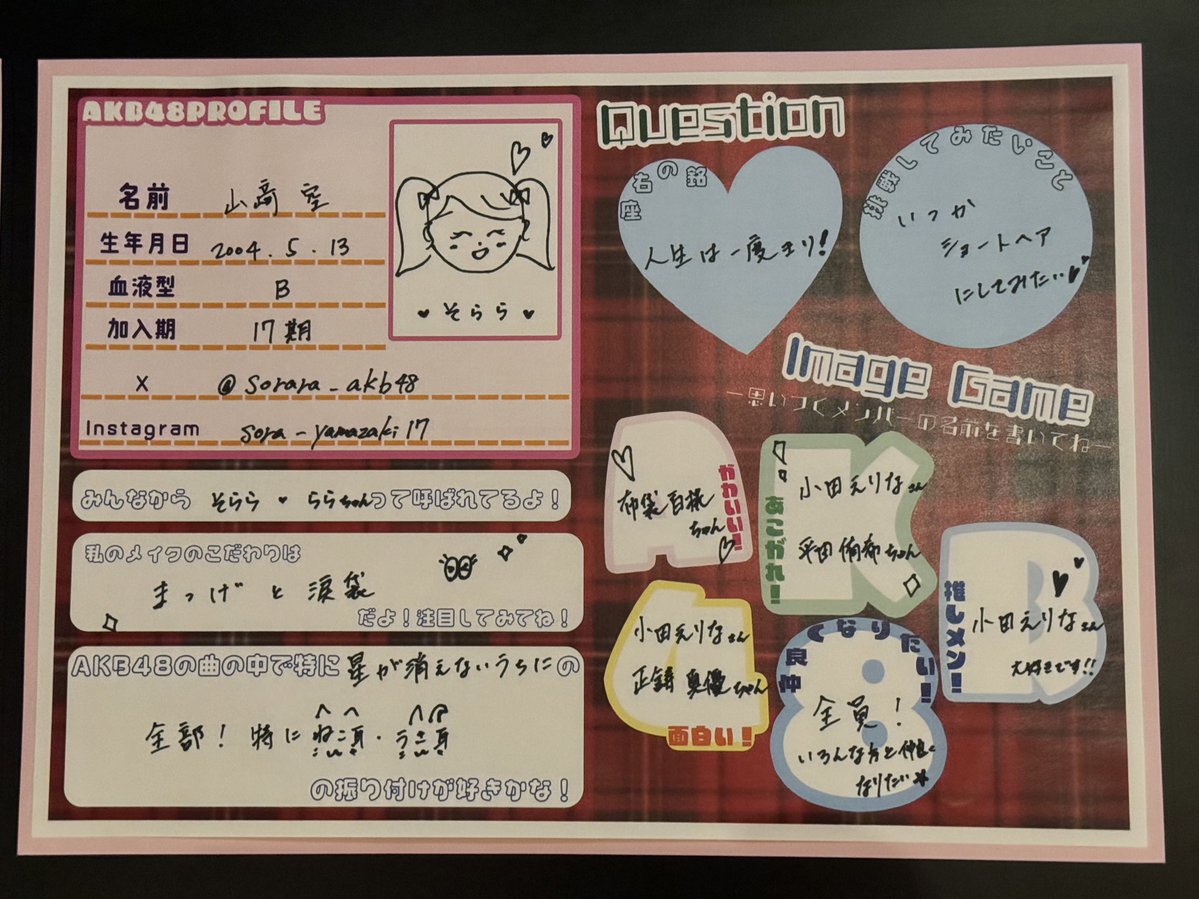 AKB48PROFILE
名前 山﨑 空
生年月日 2004.5.13
血液型 B
加入期 17期
X @sorara_akb48
Instagram sora_yamazaki17
♥ そらら ♥
みんなから そらら ♥ ららちゃんって呼ばれてるよ!
私のメイクのこだわりは
まつげ と 涙袋
だよ!注目してみてね!
AKB48の曲の中で特に 星が消えないうちにの
全部! 特に ねこ耳・うさ耳
の振り付けが好きかな!
Question
座右の銘
人生は一度きり!
挑戦してみたいこと
いつか
ショートヘア
にしてみたい♥
Image Game
ー思いつくメンバーの名前を書いてねー
かわいい!
布袋百椛
ちゃん
あこがれ!
小田えりなさん
平田侑希ちゃん
推しメン!
小田えりなさん
大好きです!!
面白い!
小田えりなさん
正鋳真優ちゃん
仲良くなりたい!
全員!
いろんな方と仲良く
なりたい